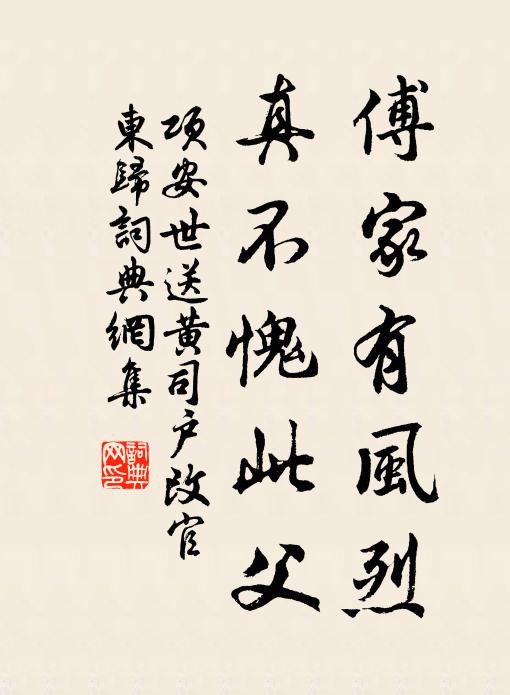 傅家有風烈
真不愧此父
項安世送黄司戶改官
東歸詞典網集
詞典
网印